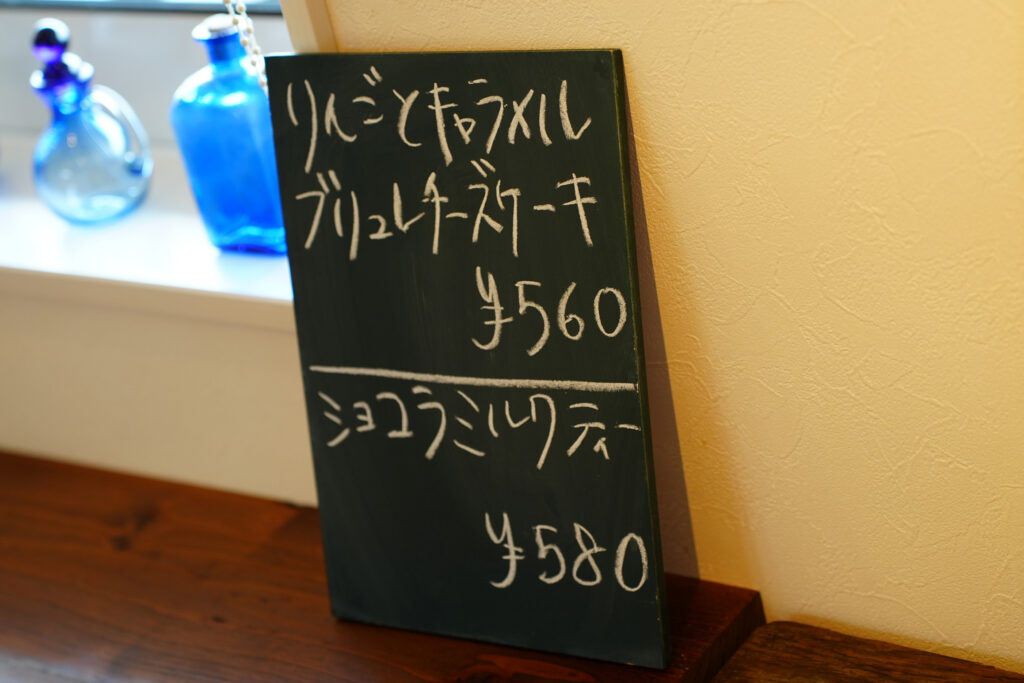 りんごとキャラメル
ブリュレチーズケーキ
¥560
ショコラミルクティー
¥580